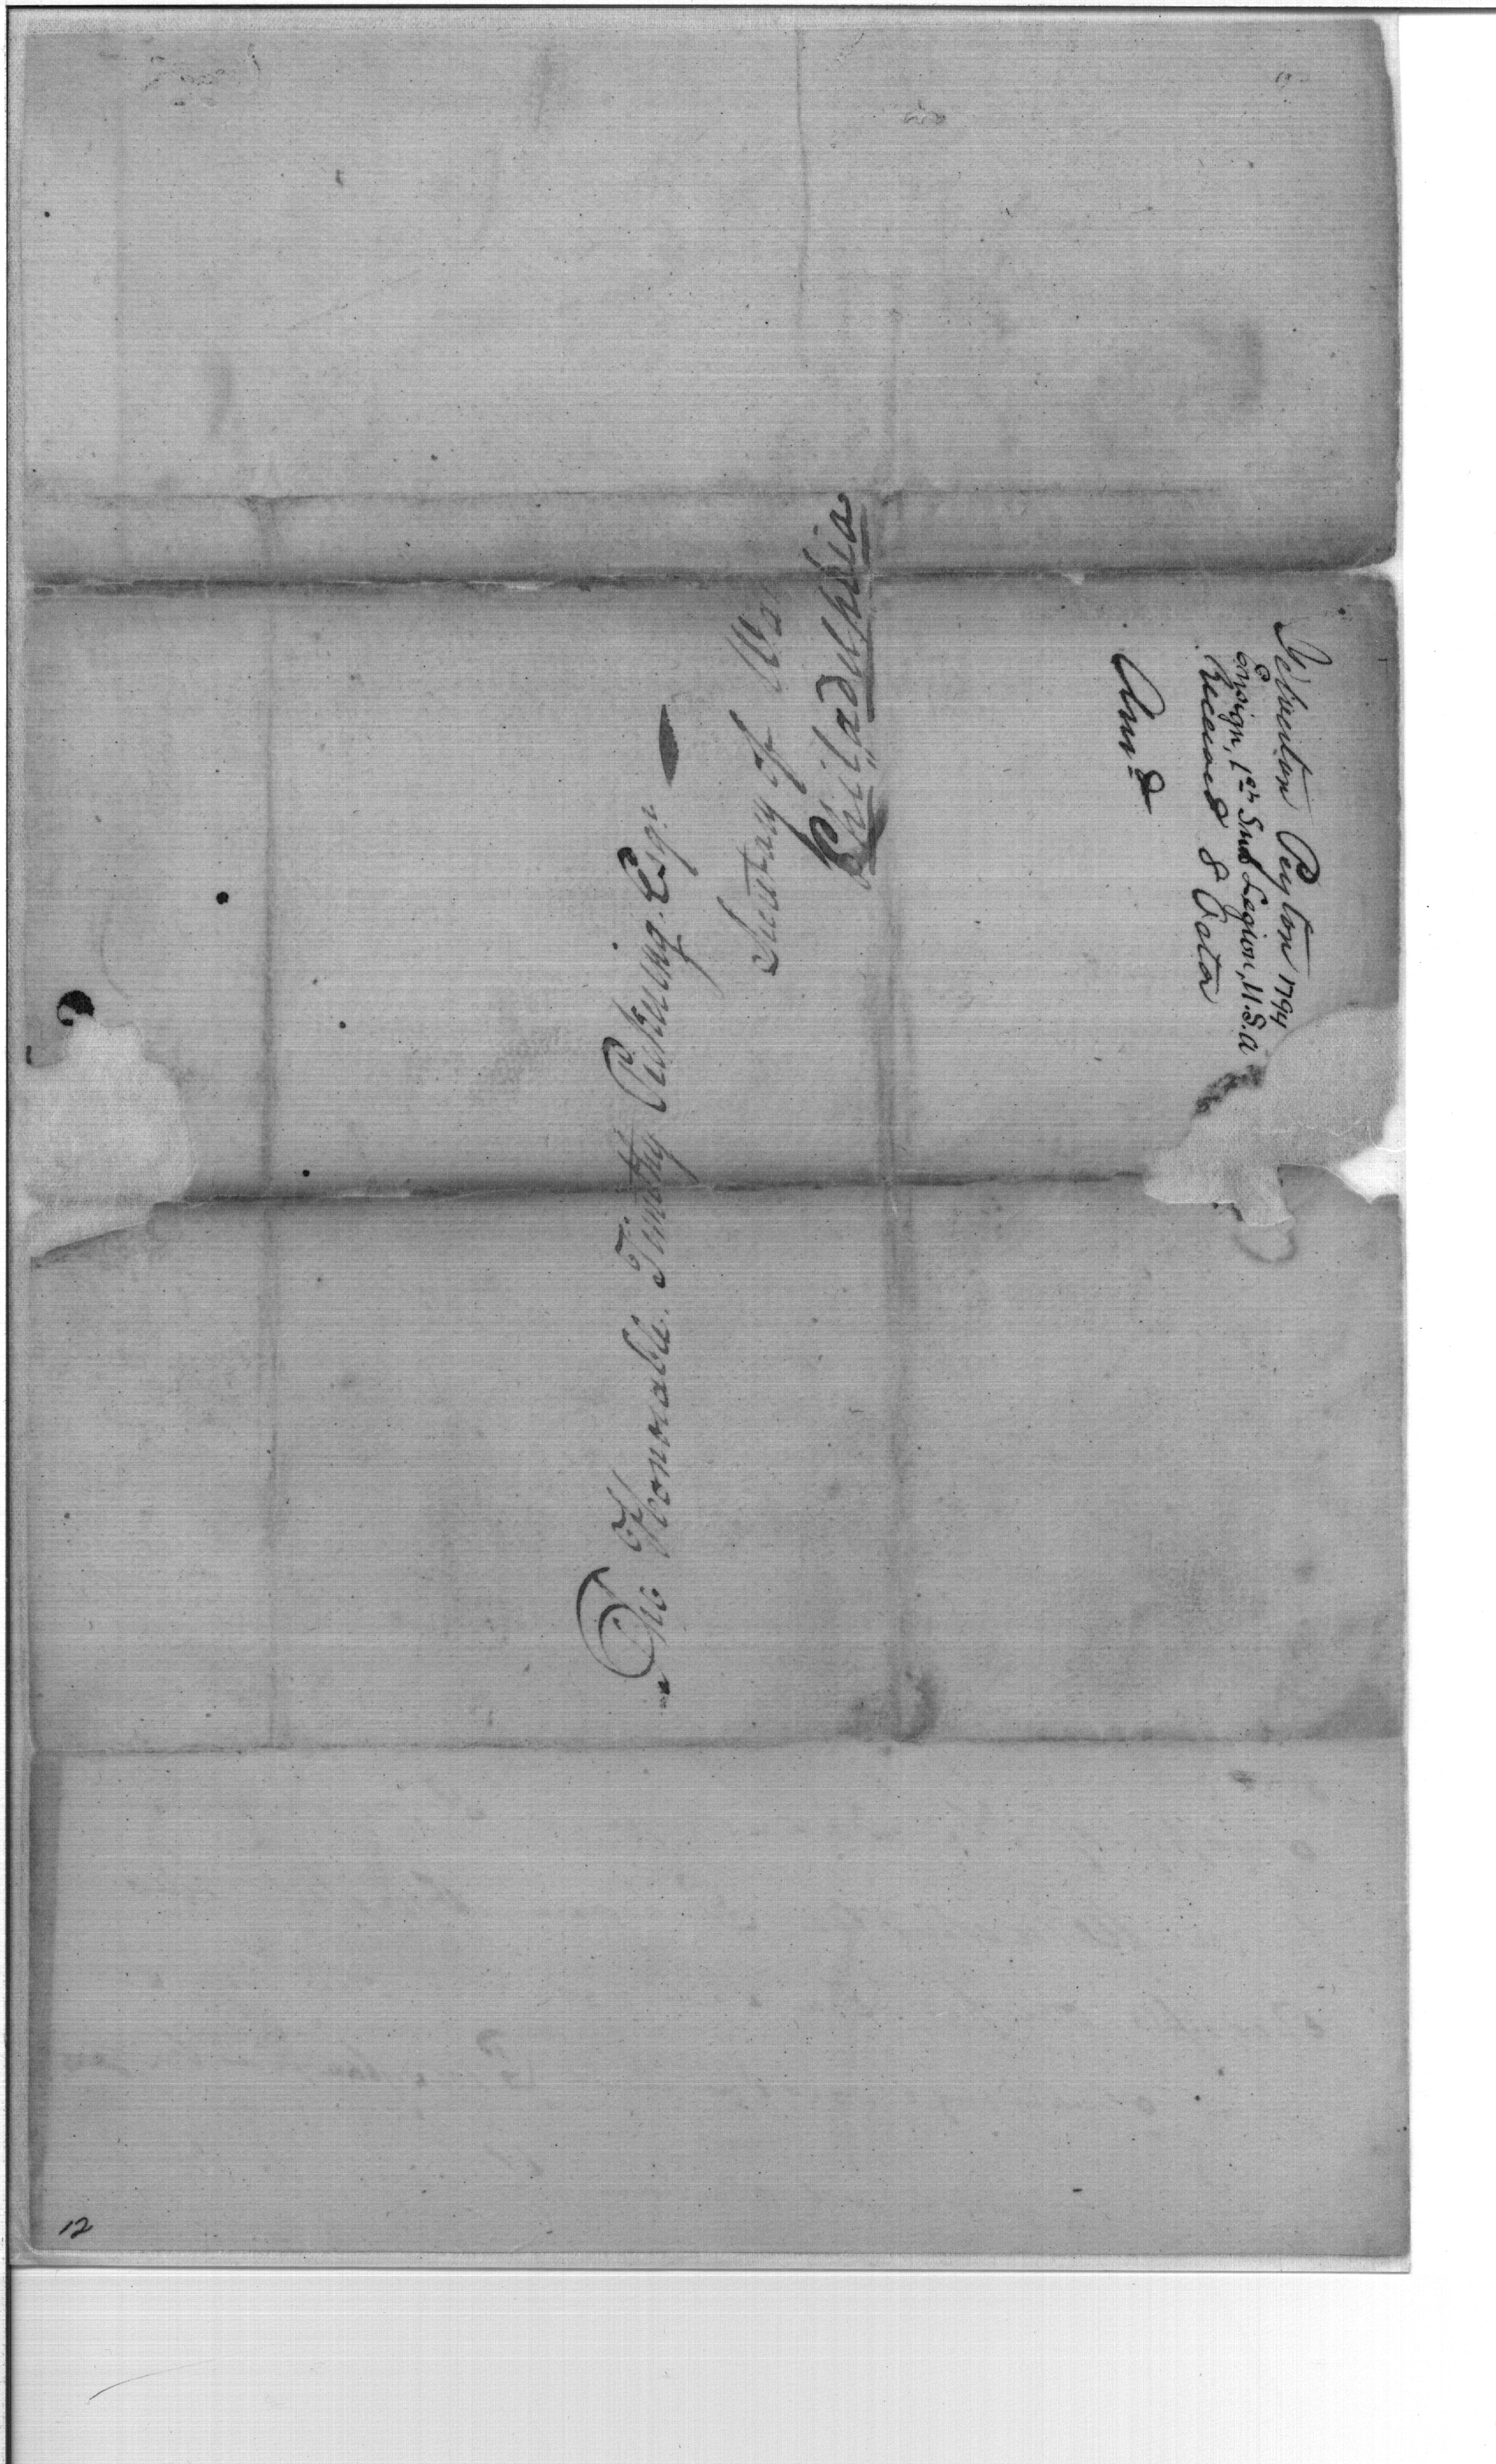 The Honorable. Timothy Pickering. Esqr.
Secretary of War
Philadelphia
Yelverton Peyton 1794
Ensign, 1st Sub Legion, U.S.A
Received 8 Octor
Ansd
12